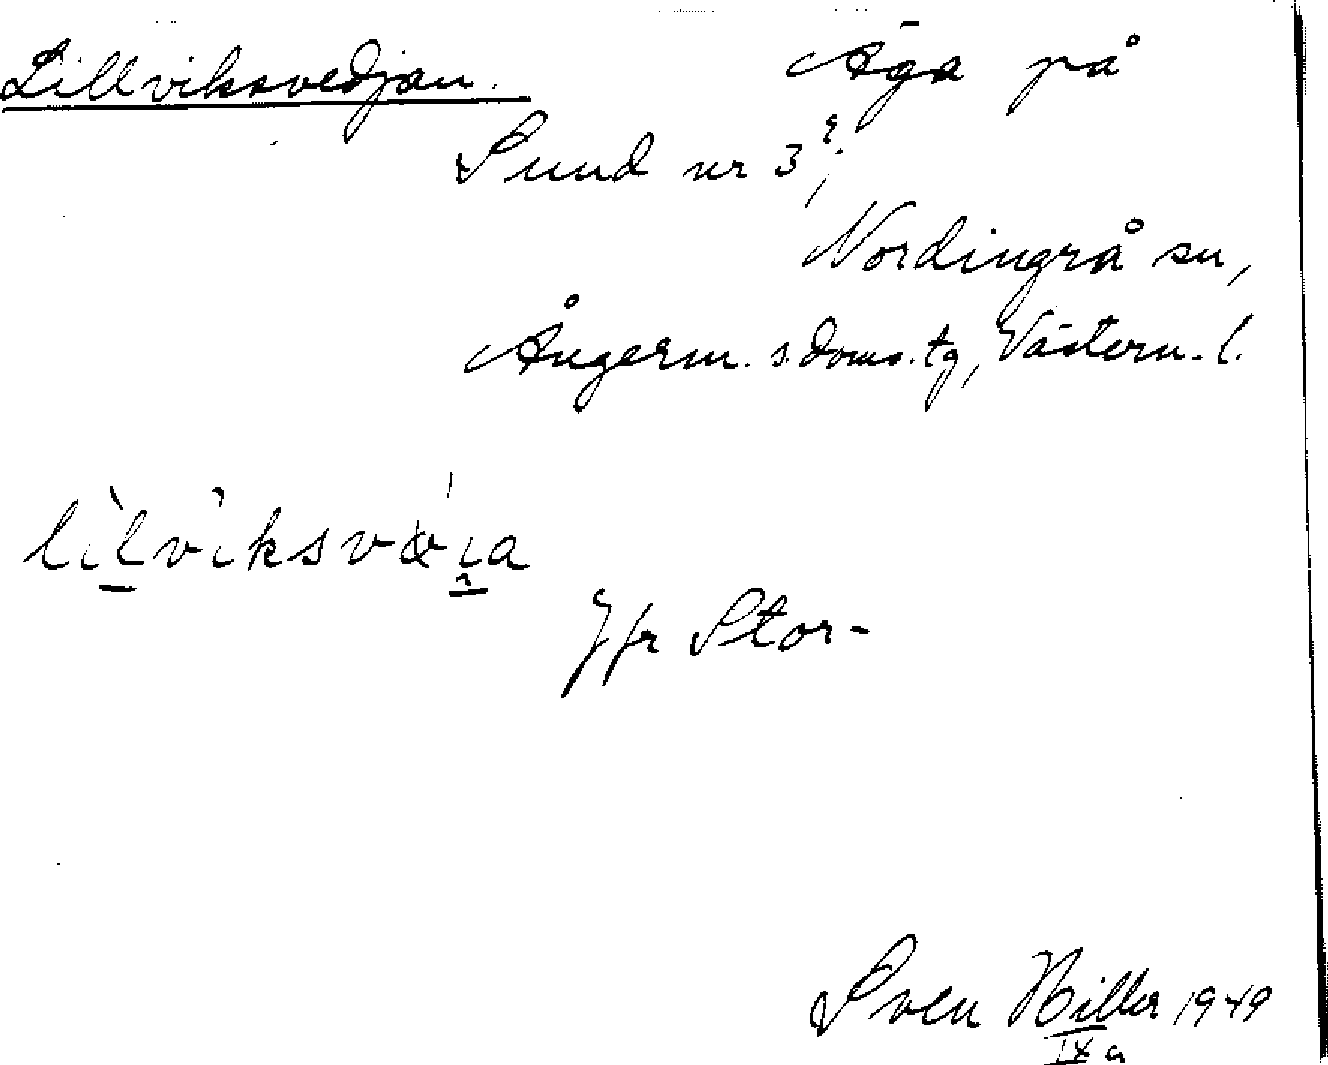 Lillviksvedjan. Äga på
Sund nr 3²;
Nordingrå sn,
Ångerm. s. doms. tg, Västern. l.
Jfr Stor-
Sven Hiller 1949
IX a